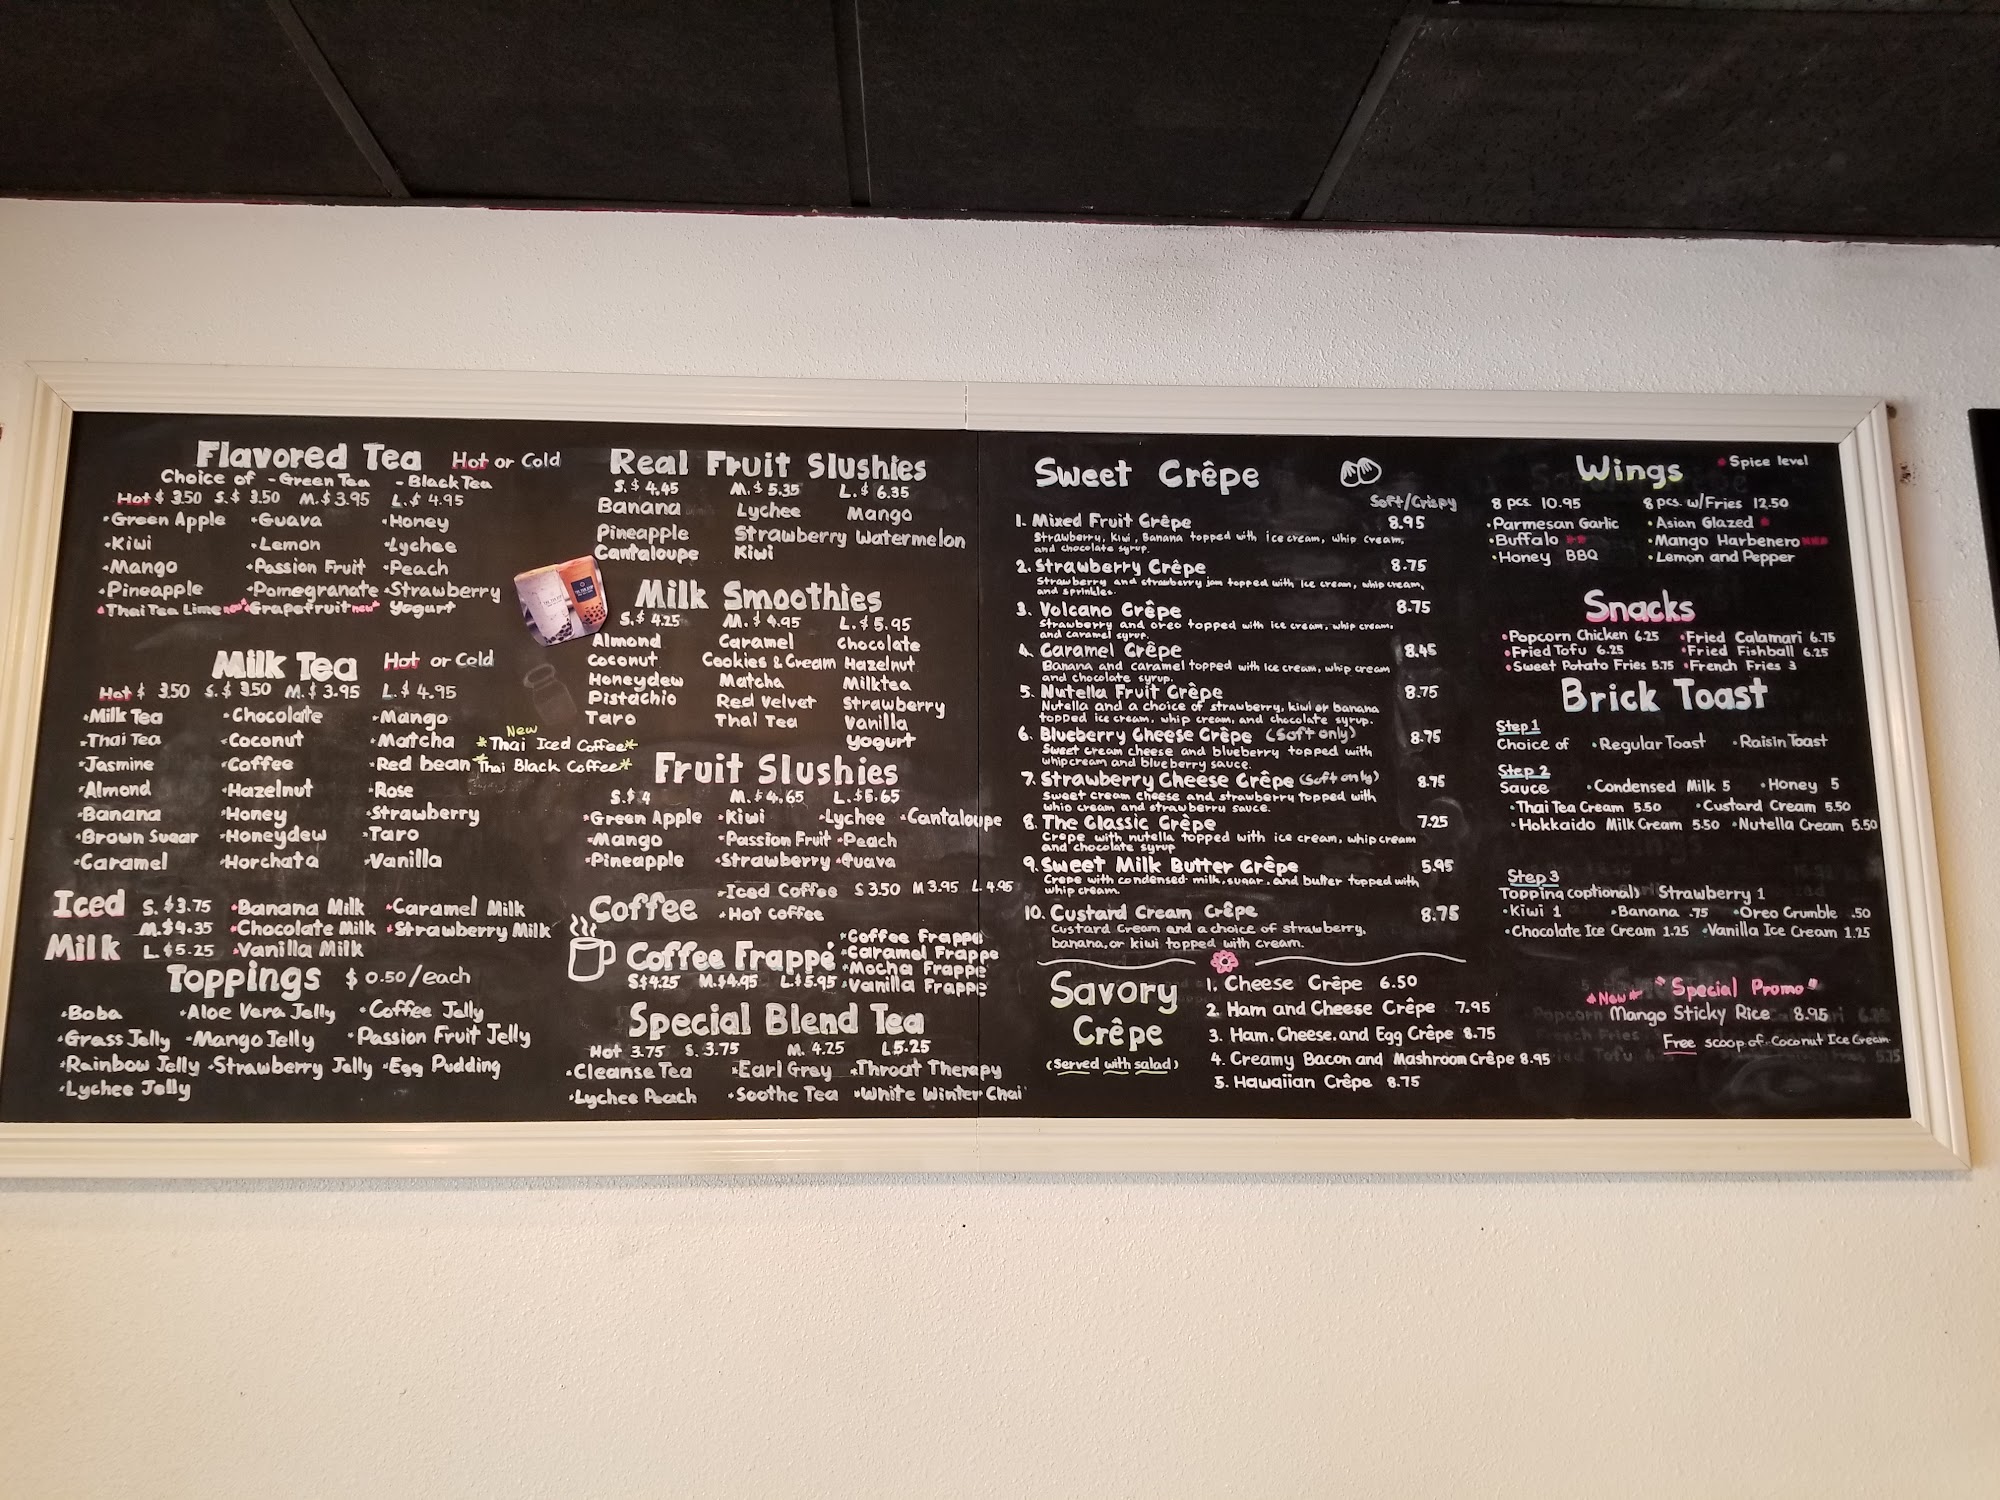 Flavored Tea Hot or Cold
Choice of - Green Tea - Black Tea
Hot $ 3.50 S.$ 3.50 M.$ 3.95 L.$ 4.95
Green Apple Guava Honey
Kiwi Lemon Lychee
Mango Passion Fruit Peach
Pineapple Pomegranate Strawberry
Thai Tea Lime new Grapefruit new Yogurt
Milk Tea Hot or Cold
Hot $ 3.50 S.$ 3.50 M.$ 3.95 L.$ 4.95
Milk Tea Chocolate Mango
Thai Tea Coconut Matcha
Jasmine Coffee Red bean
Almond Hazelnut Rose
Banana Honey Strawberry
Brown Sugar Honeydew Taro
Caramel Horchata Vanilla
New
*Thai Iced Coffee*
*Thai Black Coffee*
Iced Milk
S. $3.75 Banana Milk Caramel Milk
M.$4.35 Chocolate Milk Strawberry Milk
L $5.25 Vanilla Milk
Toppings $ 0.50/each
Boba Aloe Vera Jelly Coffee Jelly
Grass Jelly Mango Jelly Passion Fruit Jelly
Rainbow Jelly Strawberry Jelly Egg Pudding
Lychee Jelly
Real Fruit Slushies
S.$ 4.45 M.$ 5.35 L.$ 6.35
Banana Lychee Mango
Pineapple Strawberry Watermelon
Cantaloupe Kiwi
Milk Smoothies
S.$ 4.25 M.$ 4.95 L.$ 5.95
Almond Caramel Chocolate
Coconut Cookies & Cream Hazelnut
Honeydew Matcha Milktea
Pistachio Red Velvet Strawberry
Taro Thai Tea Vanilla
Yogurt
Fruit Slushies
S.$ 4 M.$ 4.65 L.$5.65
Green Apple Kiwi Lychee Cantaloupe
Mango Passion Fruit Peach
Pineapple Strawberry Guava
Coffee
Iced Coffee S 3.50 M 3.95 L 4.95
Hot Coffee
Coffee Frappé
S$4.25 M.$4.95 L.$5.95
Coffee Frappe
Caramel Frappe
Mocha Frappe
Vanilla Frappe
Special Blend Tea
Hot 3.75 S. 3.75 M. 4.25 L5.25
Cleanse Tea Earl Grey Throat Therapy
Lychee Peach Soothe Tea White Winter Chai
Sweet Crêpe
Soft/Crispy
1. Mixed Fruit Crêpe 8.95
Strawberry, Kiwi, Banana topped with ice cream, whip cream,
and chocolate syrup.
2. Strawberry Crêpe 8.75
Strawberry and strawberry jam topped with ice cream, whip cream,
and sprinkles.
3. Volcano Crêpe 8.75
Strawberry and oreo topped with ice cream, whip cream,
and caramel syrup.
4. Caramel Crêpe 8.45
Banana and caramel topped with ice cream, whip cream
and chocolate syrup.
5. Nutella Fruit Crêpe 8.75
Nutella and a choice of strawberry, kiwi or banana
topped ice cream, whip cream, and chocolate syrup.
6. Blueberry Cheese Crêpe (Soft only) 8.75
Sweet cream cheese and blueberry topped with
whipcream and blueberry sauce.
7. Strawberry Cheese Crêpe (Soft only) 8.75
Sweet cream cheese and strawberry topped with
whip cream and strawberry sauce.
8. The Classic Crêpe 7.25
Crepe with nutella topped with ice cream, whip cream
and chocolate syrup
9. Sweet Milk Butter Crêpe 5.95
Crepe with condensed milk, sugar, and butter topped with
whip cream.
10. Custard Cream Crêpe 8.75
Custard Cream and a choice of strawberry,
banana, or kiwi topped with cream.
Savory Crêpe
(Served with salad)
1. Cheese Crêpe 6.50
2. Ham and Cheese Crêpe 7.95
3. Ham. Cheese. and Egg Crêpe 8.75
4. Creamy Bacon and Mashroom Crêpe 8.95
5. Hawaiian Crêpe 8.75
Wings Spice level
8 pcs. 10.95 8 pcs. w/Fries 12.50
Parmesan Garlic Asian Glazed
Buffalo Mango Harbenero
Honey BBQ Lemon and Pepper
Snacks
Popcorn Chicken 6.25 Fried Calamari 6.75
Fried Tofu 6.25 Fried Fishball 6.25
Sweet Potato Fries 5.75 French Fries 3
Brick Toast
Step 1
Choice of Regular Toast Raisin Toast
Step 2
Sauce Condensed Milk 5 Honey 5
Thai Tea Cream 5.50 Custard Cream 5.50
Hokkaido Milk Cream 5.50 Nutella Cream 5.50
Step 3
Topping (optional) Strawberry 1
Kiwi 1 Banana .75 Oreo Crumble .50
Chocolate Ice Cream 1.25 Vanilla Ice Cream 1.25
*New* "Special Promo"
Mango Sticky Rice 8.95
Free scoop of Coconut Ice Cream